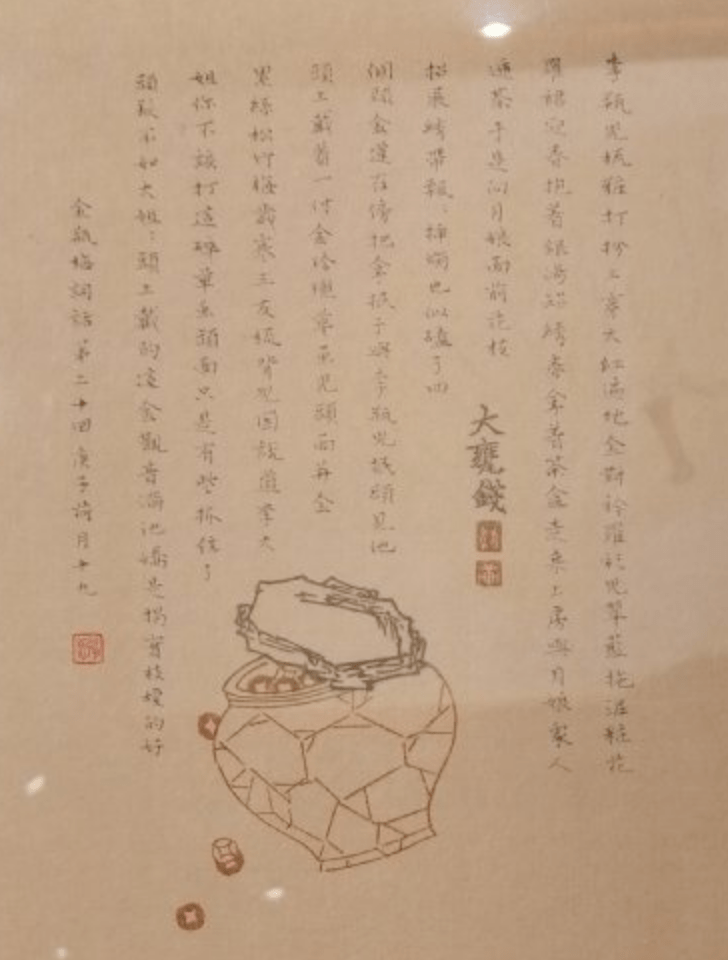 李瓶兒梳粧打扮上穿大紅遍地金對衿羅衫兒翠藍拖泥粧花
羅裙迎春抱着銀湯瓶綉春拿着茶盒走來上房與月娘人
遞茶于是向月娘面前花枝
招展綉帶飄飄插燭也似磕了四
個頭金蓮在傍把金抿子與李瓶兒抿頭見他
頭上戴着一付金玲瓏草虫兒頭面并金
累絲松竹梅歲寒三友梳背兒因說道李大
姐你不該打這碎草虫頭面只是有些抓住了
頭髮不如大姐姐頭上戴的這金觀音滿池嬌是揭實枝梗的好
金瓶梅詞話第二十四庚子荷月十九
大甕錢